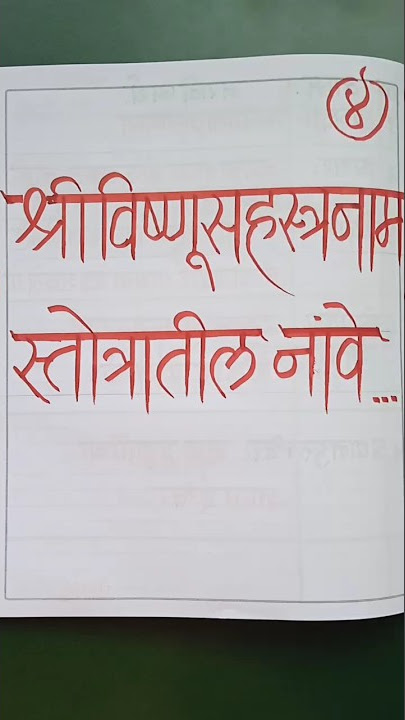 ४
श्रीविष्णूसहस्त्रनाम
स्तोत्रातील नांवे...